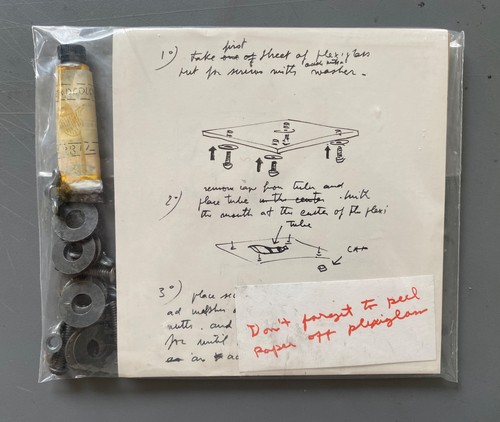 1°)
first
take one of sheet of plexiglass
put for screws with washer.
2°) remove cap from tube and
place tube in the center. with
the mouth at the center of the plexi
tube
CAP
3°) place
ad washer
nuts. and
for until
an
Don't forget to peel
paper off plexiglass